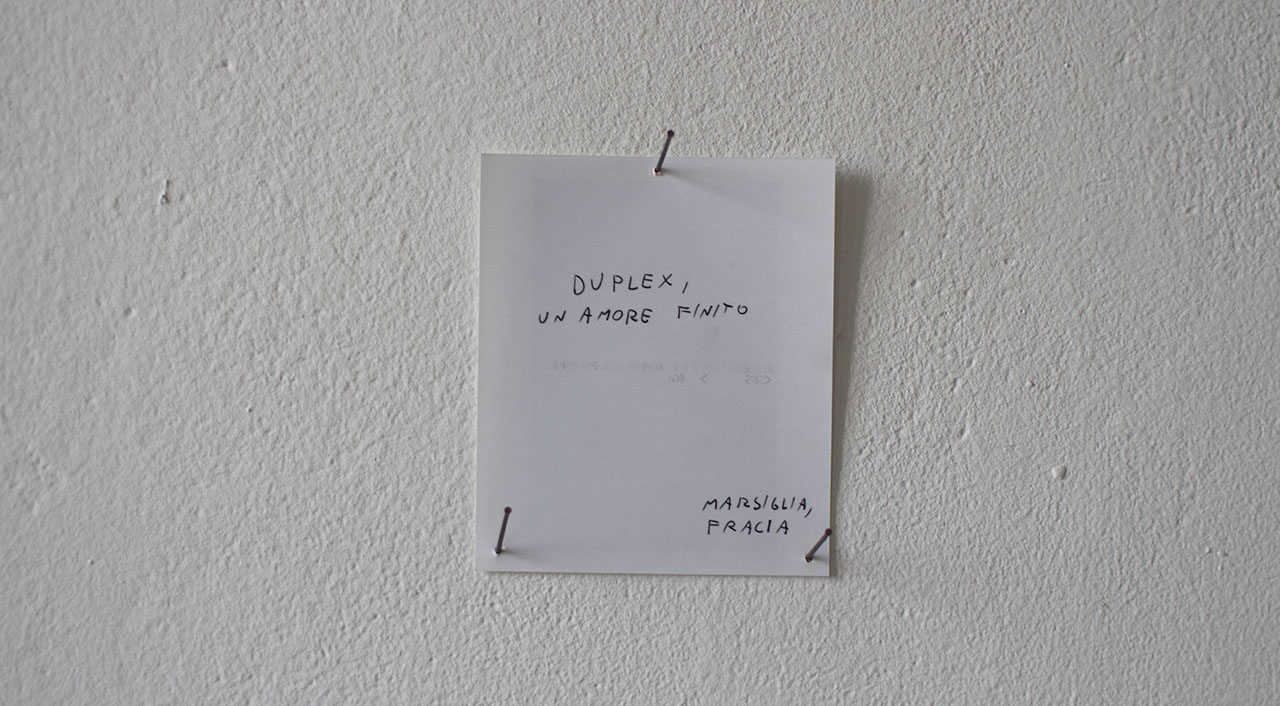 DUPLEX,
UN AMORE FINITO
MARSIGLIA,
FRACIA